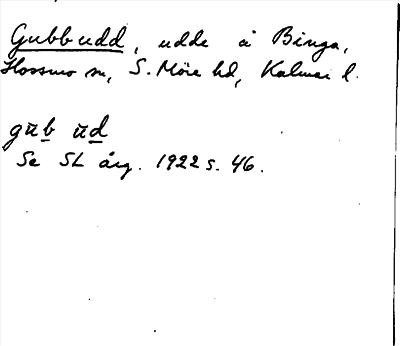 Gubbudd, udde å Binga,
Hossmo sn, S. Möre hd, Kalmar l.
gub ud
Se SL årg. 1922 s. 46.